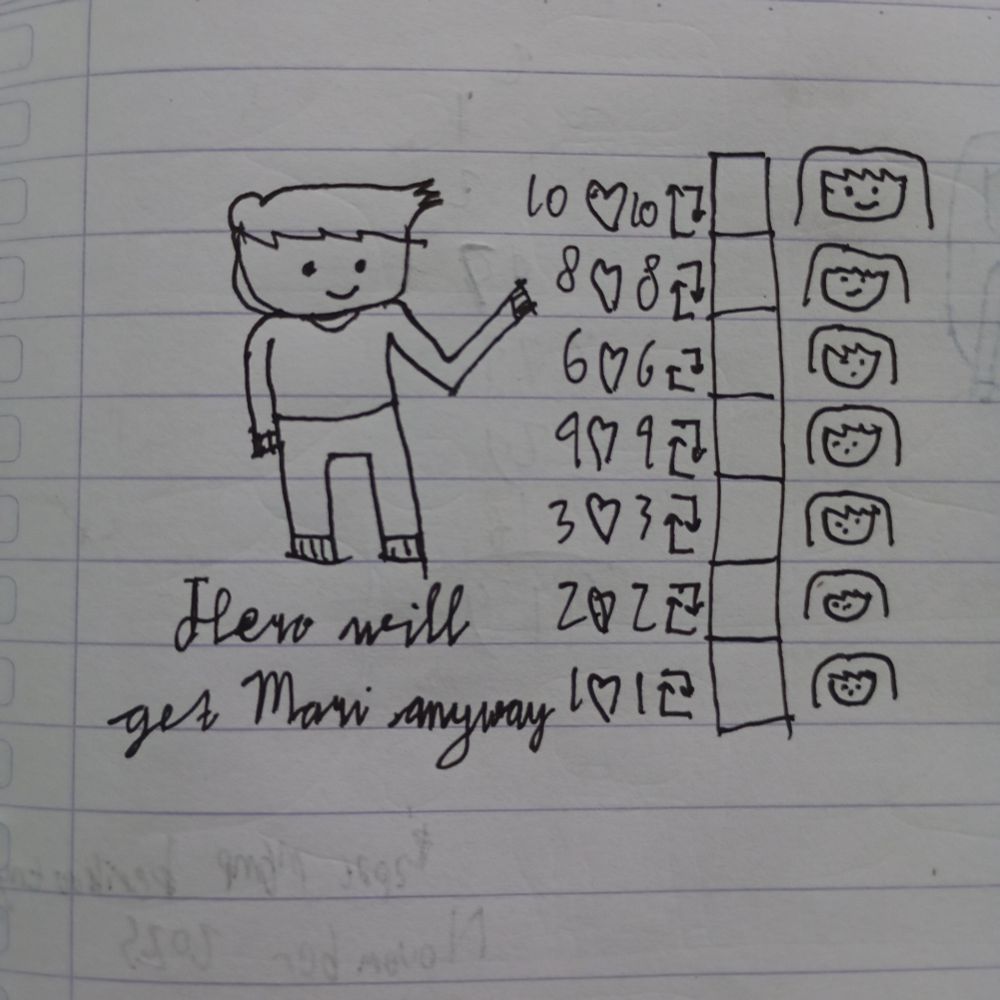 10 ♡ 10
8 ♡ 8
6 ♡ 6
9 ♡ 9
3 ♡ 3
2 ♡ 2
1 ♡ 1
Hero will
get Mari anyway
November 2025